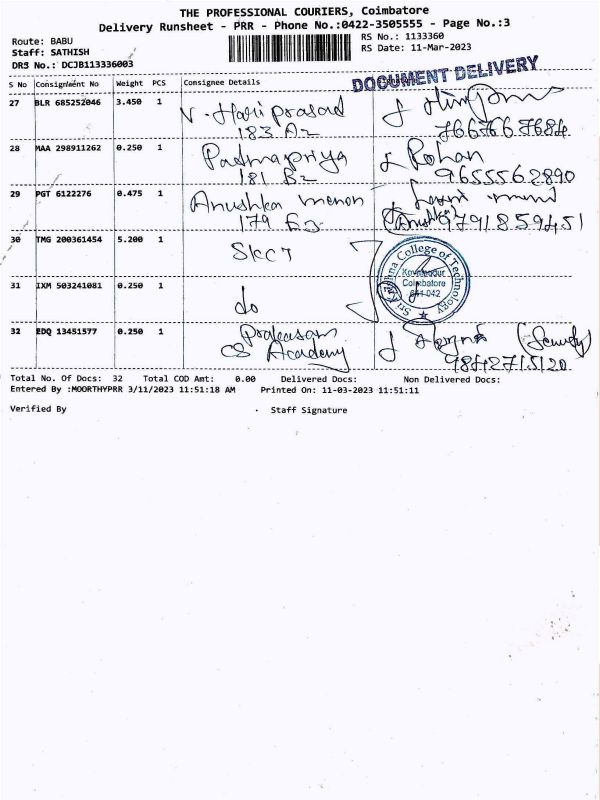 THE PROFESSIONAL COURIERS, Coimbatore
Delivery Runsheet - PRR - Phone No.:0422-3505555 - Page No.:3
Route: BABU
Staff: SATHISH
DRS No.: DCJB113336003
RS No.: 1133360
RS Date: 11-Mar-2023
DOCUMENT DELIVERY
S No Consignment No Weight PCS Consignee Details
27 BLR 685252046 3.450 1 V. Hari prasad
183 A2 7667667684
28 MAA 298911262 0.250 1 Padmapriya Rohan
181 B2 9655562890
29 PGT 6122276 0.475 1 Anushka menon
179 E3 (Anushka) 9791859451
30 TMG 200361454 5.200 1 SKCT
Sri Krishna College of Technology
Kovaipudur
Coimbatore
641 042
31 IXM 503241081 0.250 1 do
32 EDQ 13451577 0.250 1
CS Academy 9842715120
Total No. Of Docs: 32 Total COD Amt: 0.00 Delivered Docs: Non Delivered Docs:
Entered By :MOORTHYPRR 3/11/2023 11:51:18 AM Printed On: 11-03-2023 11:51:11
Verified By . Staff Signature